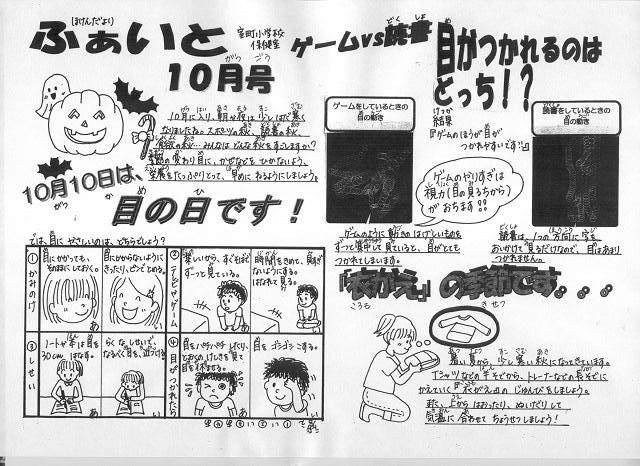 (ほけんだより)
ふぁいと
室町小学校
保健室
10月号
10月に入り、朝や夜は少しはだ寒く
なりましたね。スポーツの秋、読書の秋、
食欲の秋…みんなはどんな秋をすごしますか？
季節の変わり目に、かぜなどをひかないよう、
たっぷりとって、早めにねるようにしましょう。
10月10日は、
目の日です！
ゲームvs読書
目がつかれるのは
どっち！？
ゲームをしているときの
目の動き
結果
『ゲームのほうが目が
つかれやすいです』
読書をしているときの
目の動き
ゲームのやりすぎは
視力(目の見る力)
がおちます!!
ゲームのように動きのはげしいものを
ずっと集中して見ていると、目がとても
つかれてしまいます。
読書は、1つの方向に字を
おいかけて見るだけなので、目はあまり
つかれません。
では、目にやさしいのは、どちらでしょう？
①かみのけ
目にかかっても、
そのままにしておく。
あ
目にかからないように
きったり、ピンでとめる。
い
②テレビやゲーム
楽しいから、すぐそばで
ずっと見ている。
あ
時間をきめて、
ないようにする。
はなれて見る。
い
③しせい
ノートや本は目を
30cmはなす。
あ
らくなしせいで、
なるべく目を、近づける
い
④目がつかれたら
目をパチパチしたり、
とおくのけしきを見て
目を休ませる。
あ
目をゴシゴシこする。
い
「衣がえ」の季節です。。。
暑い夏から、少し寒い秋になってきています。
Tシャツなどの半そでから、トレーナーなどの長そでに
かえていく「衣がえ」のじゅんびをしましょう。
また、上からはおったり、ぬいだりして
気温に合わせてちょうせつしましょう！